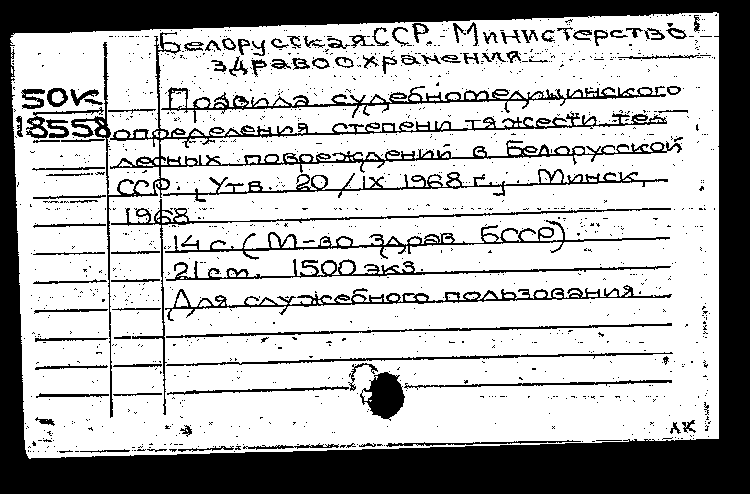 Белорусская ССР. Министерство
здравоохранения.
50К
8558
Правила судебномедицинского
определения степени тяжести те-
лесных повреждений в Белорусской
ССР. Утв. 20/IX 1968 г., Минск,
1968.
14 с. (М-во здрав. БССР).
21 см. 1500 экз.
Для служебного пользования.
ЛК